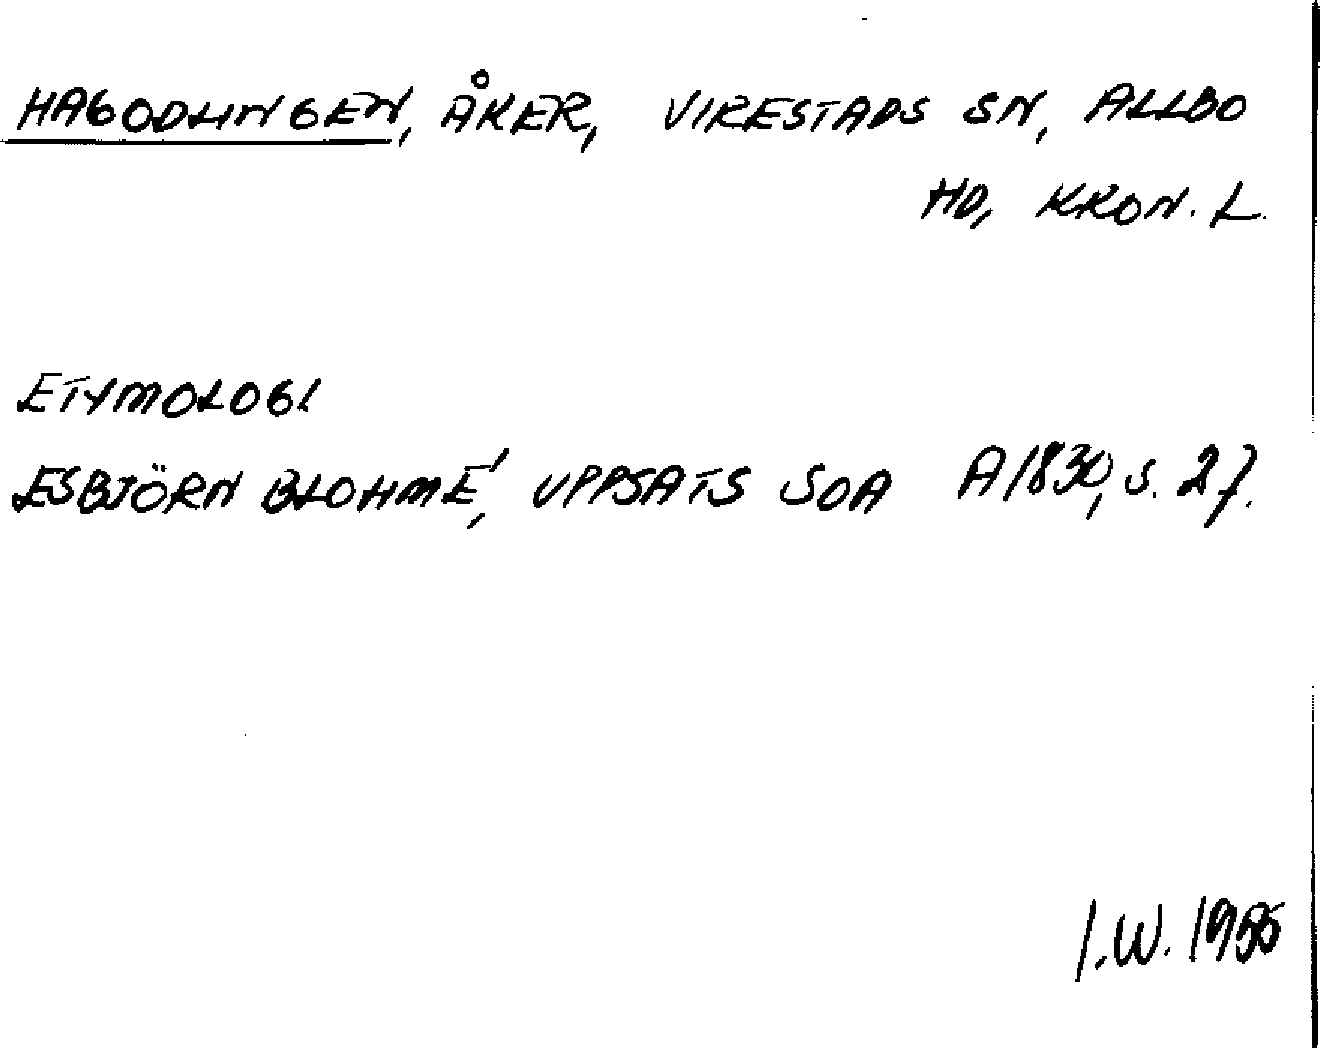 HAGODLINGEN, ÅKER, VIRESTADS SN, ALLBO
HD, KRON. L.
ETYMOLOGI
ESBJÖRN BLOHMÉ, UPPSATS SOA A1830, S. 27.
I.W.